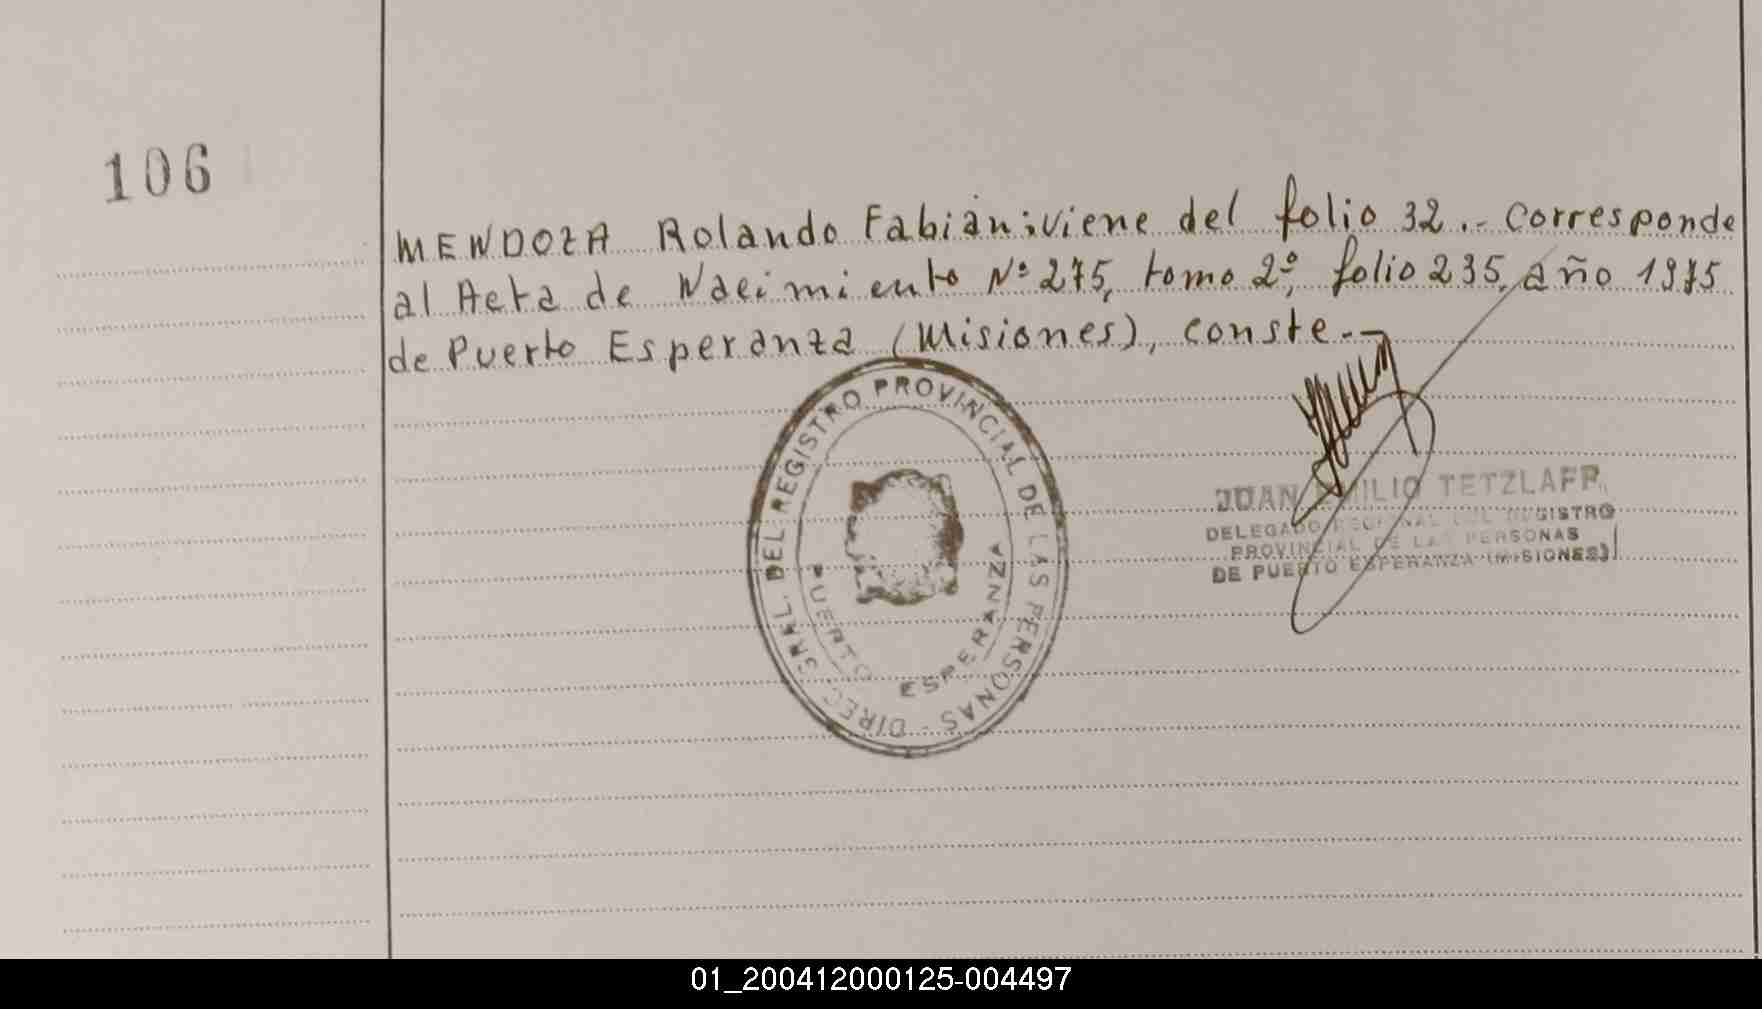 106
MENDOZA Rolando Fabián: Viene del folio 32.- Corresponde
al Acta de Nacimiento Nº 275, tomo 2º, folio 235, año 1975
de Puerto Esperanza (Misiones), conste.-
DIREC. GRAL. DEL REGISTRO PROVINCIAL DE LAS PERSONAS -
PUERTO ESPERANZA
JUAN EMILIO TETZLAFF
DELEGADO REGIONAL DEL REGISTRO
PROVINCIAL DE LAS PERSONAS
DE PUERTO ESPERANZA (MISIONES)
01_200412000125-004497